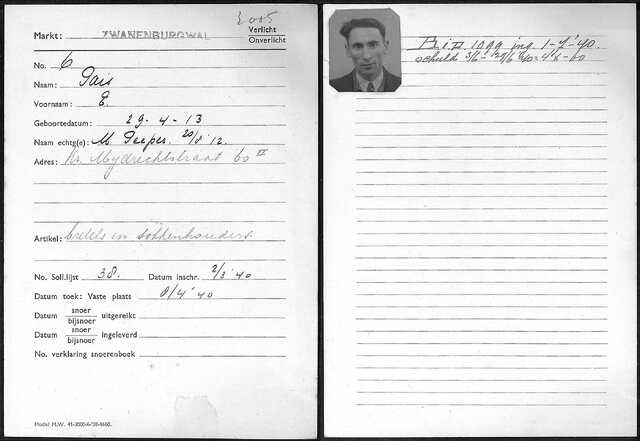 2005
Markt: ZWANENBURGWAL
Verlicht
Onverlicht
No. 6
Naam: Pais
Voornaam: E.
Geboortedatum: 29-4-13
Naam echtg(e): M. Peeper. 20/8 '12.
Adres: Kr. Mydrechtstraat 60 II
Artikel: bretels en sokkenhouders.
No. Soll.lijst 38. Datum inschr. 2/3 '40
Datum toek: Vaste plaats 8/4 '40
Datum snoer bijsnoer uitgereikt
Datum snoer bijsnoer ingeleverd
No. verklaring snoerenboek
Model M.W. 41-3000-6-'38-1660.
1099 ing. 1-7-'40.
schuld 3/6-29/6